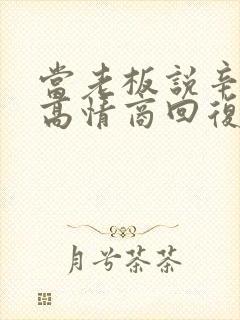 當老板說辛
高情商回復
月兮茶茶